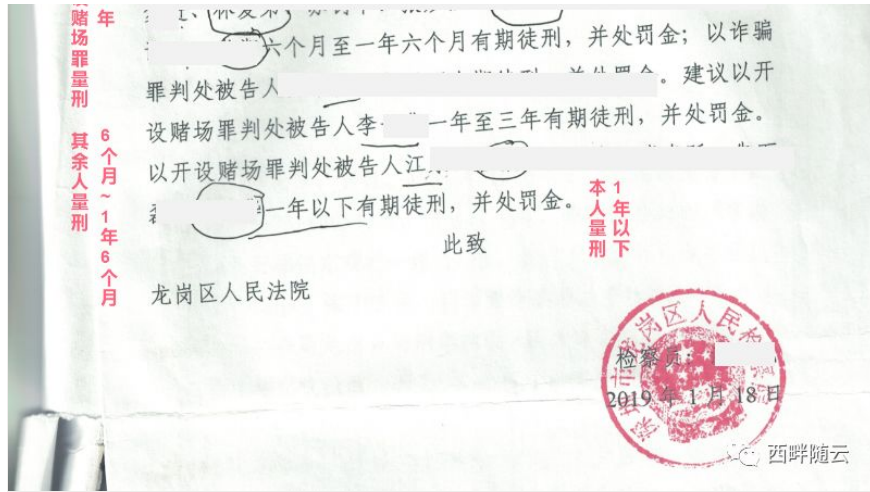 年
赌场罪量刑
其余人量刑
6个月~1年6个月
六个月至一年六个月有期徒刑，并处罚金；以诈骗
罪判处被告人
。建议以开
设赌场罪判处被告人李
一年至三年有期徒刑，并处罚金。
以开设赌场罪判处被告人江
一年以下有期徒刑，并处罚金。
本人量刑
1年以下
此致
龙岗区人民法院
检察员：
2019年1月18日
深圳市龙岗区人民检察院
西畔随云